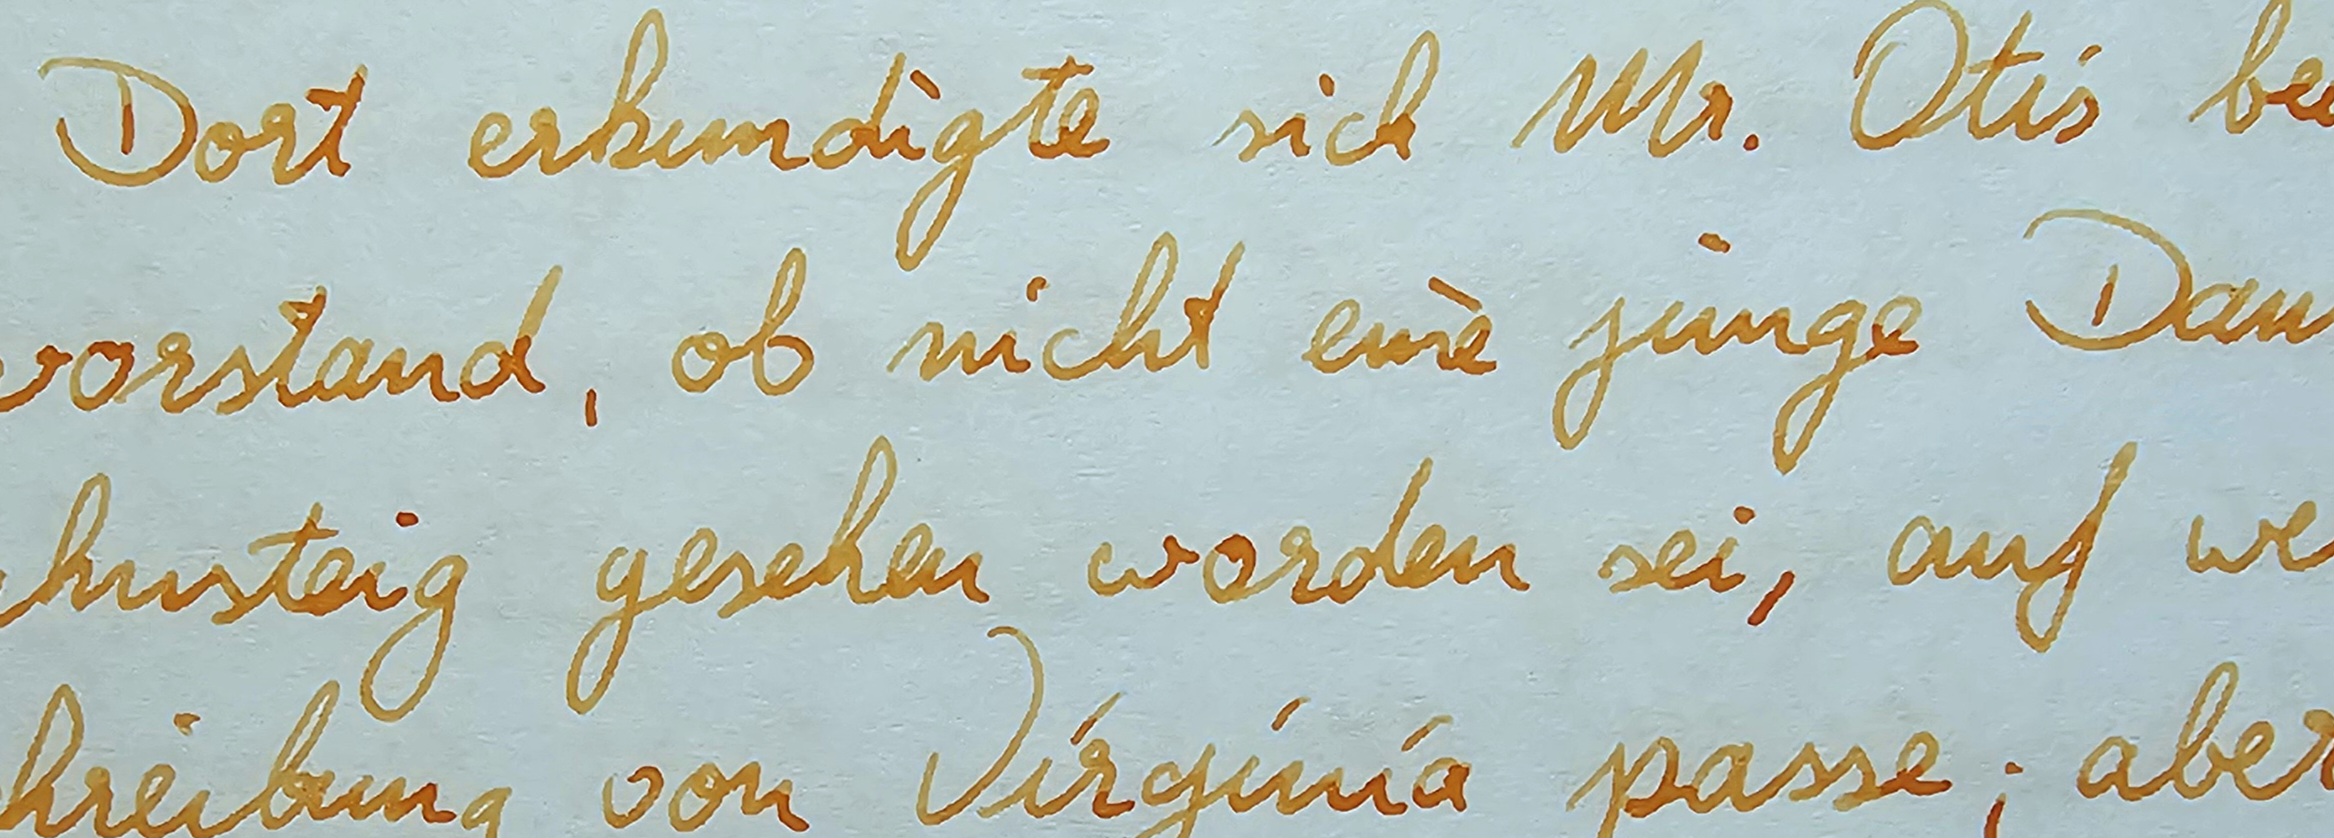 Dort erkundigte sich Mr. Otis bei
vorstand, ob nicht eine junge Dam
hnsteig gesehen worden sei, auf we
hreibung von Virginia passe; aber